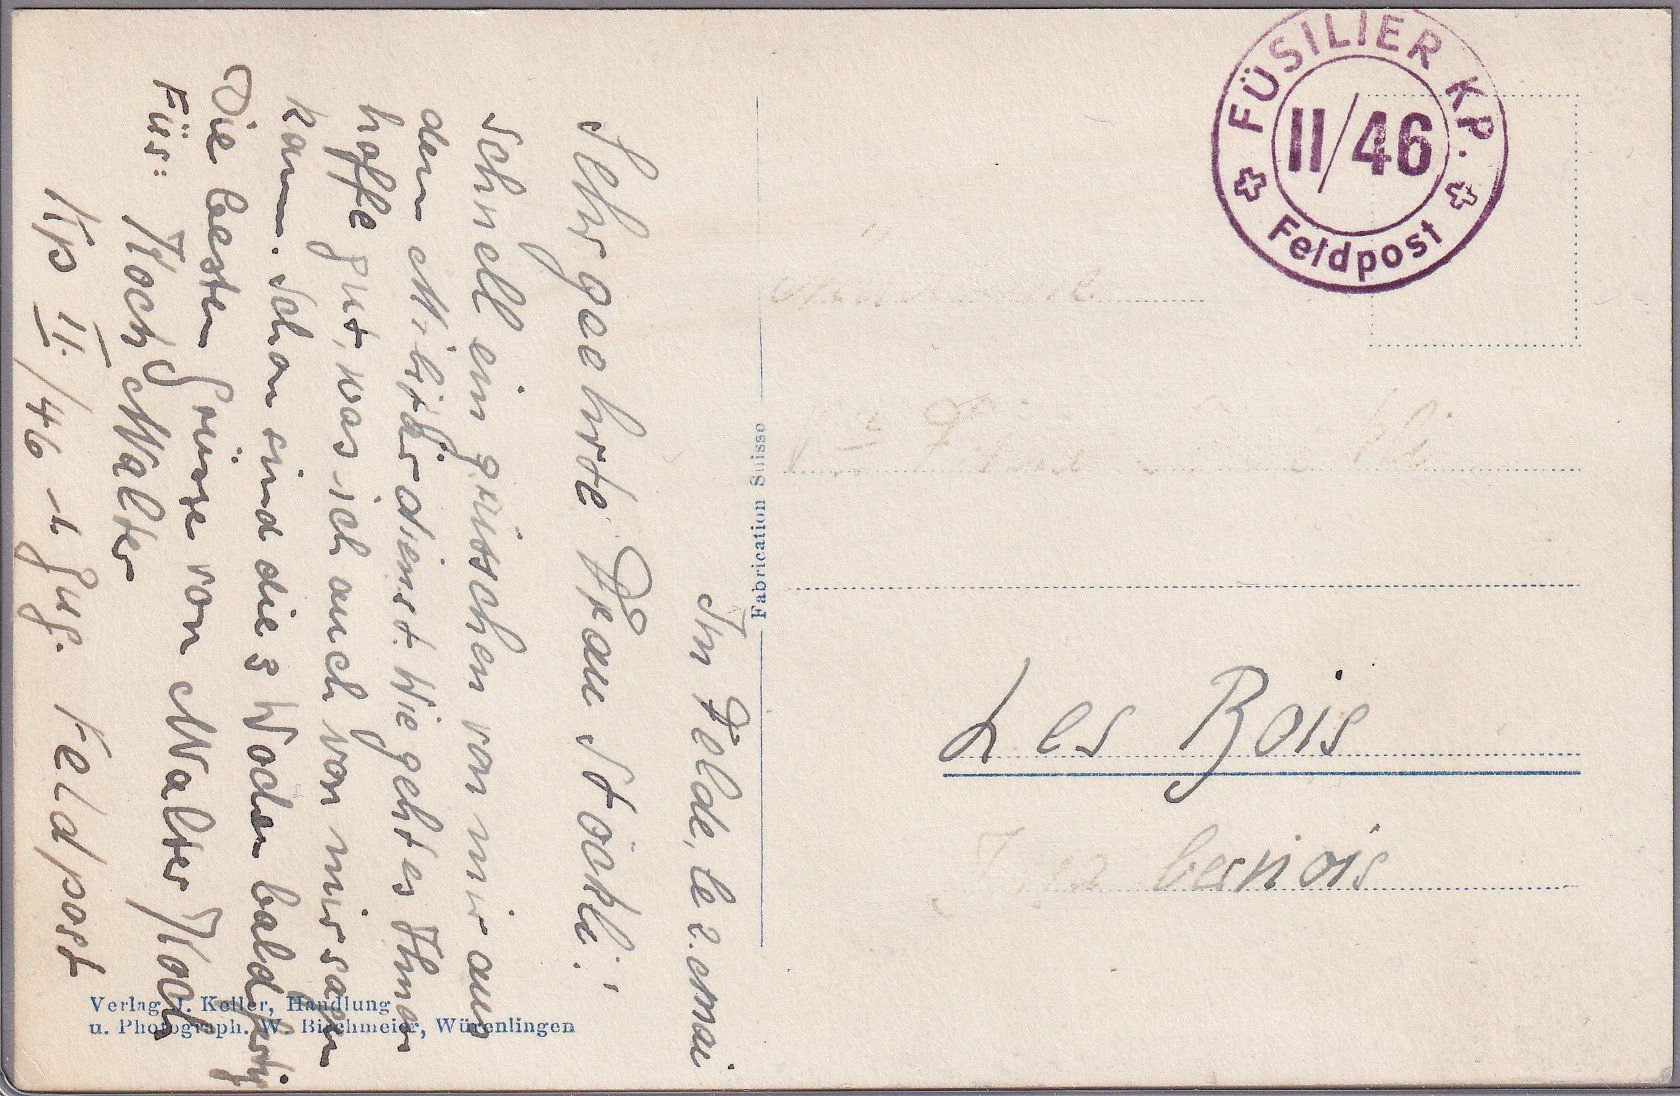 FÜSILIER KP.
II/46
Feldpost
Les Bois
bernois
Fabrication Suisse
Im Felde, le 2. Mai
Sehr geehrte Frau Stöckli!
Schnell ein grüsschen von mir aus
dem Militärdienst. Wie geht es Ihnen
hoffe gut, was ich auch von mir sagen
kann. Schon sind die 3 Wochen bald fertig
Die besten Grüsse von Walter Koch
Füs: Koch Walter
Kp II/46 1 Zug. Feldpost
Verlag J. Keller, Handlung
u. Photograph. W. Birchmeier, Würenlingen